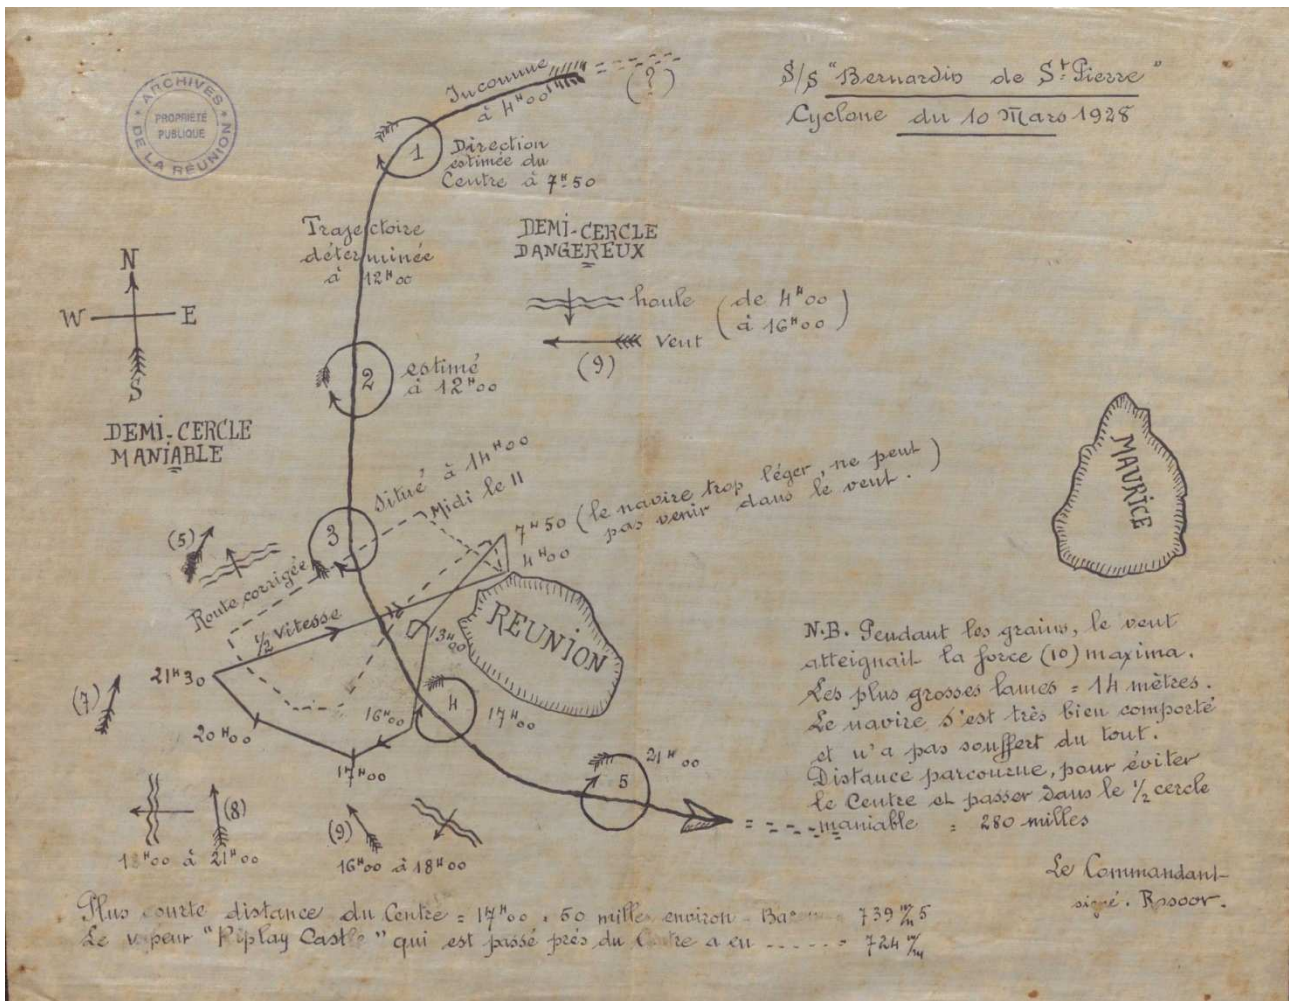 S/S "Bernardin de St. Pierre"
Cyclone du 10 Mars 1928
ARCHIVES
DE LA RÉUNION
PROPRIÉTÉ
PUBLIQUE
Inconnue
à 4ᴴ00
(?)
1
Direction
estimée du
Centre à 7ᴴ50
Trajectoire
déterminée
à 12ᴴ00
DEMI-CERCLE
DANGEREUX
houle
vent
(de 4ᴴ00
à 16ᴴ00)
(9)
N
W E
S
DEMI-CERCLE
MANIABLE
2
estimé
à 12ᴴ00
MAURICE
3
Situé à 14ᴴ00
Midi le 11
7ᴴ50 (le navire trop léger, ne peut
pas venir dans le vent.)
4ᴴ00
(5)
Route corrigée
½ vitesse
RÉUNION
13ᴴ00
21ᴴ30
(7)
20ᴴ00
16ᴴ00
4
17ᴴ00
17ᴴ00
5
21ᴴ00
(8)
à 21ᴴ00
(9)
16ᴴ00 à 18ᴴ00
N.B. Pendant les grains, le vent
atteignait la force (10) maxima.
Les plus grosses lames = 14 mètres.
Le navire s'est très bien comporté
et n'a pas souffert du tout.
Distance parcourue, pour éviter
le Centre et passer dans le ½ cercle
maniable = 280 milles
Le Commandant
signé.
Plus courte distance du Centre = 17ᴴ00 . 50 milles environ - = 739 m/m 5
Le vapeur "Piplay Castle" qui est passé près du Centre a eu ------ = 724 m/m